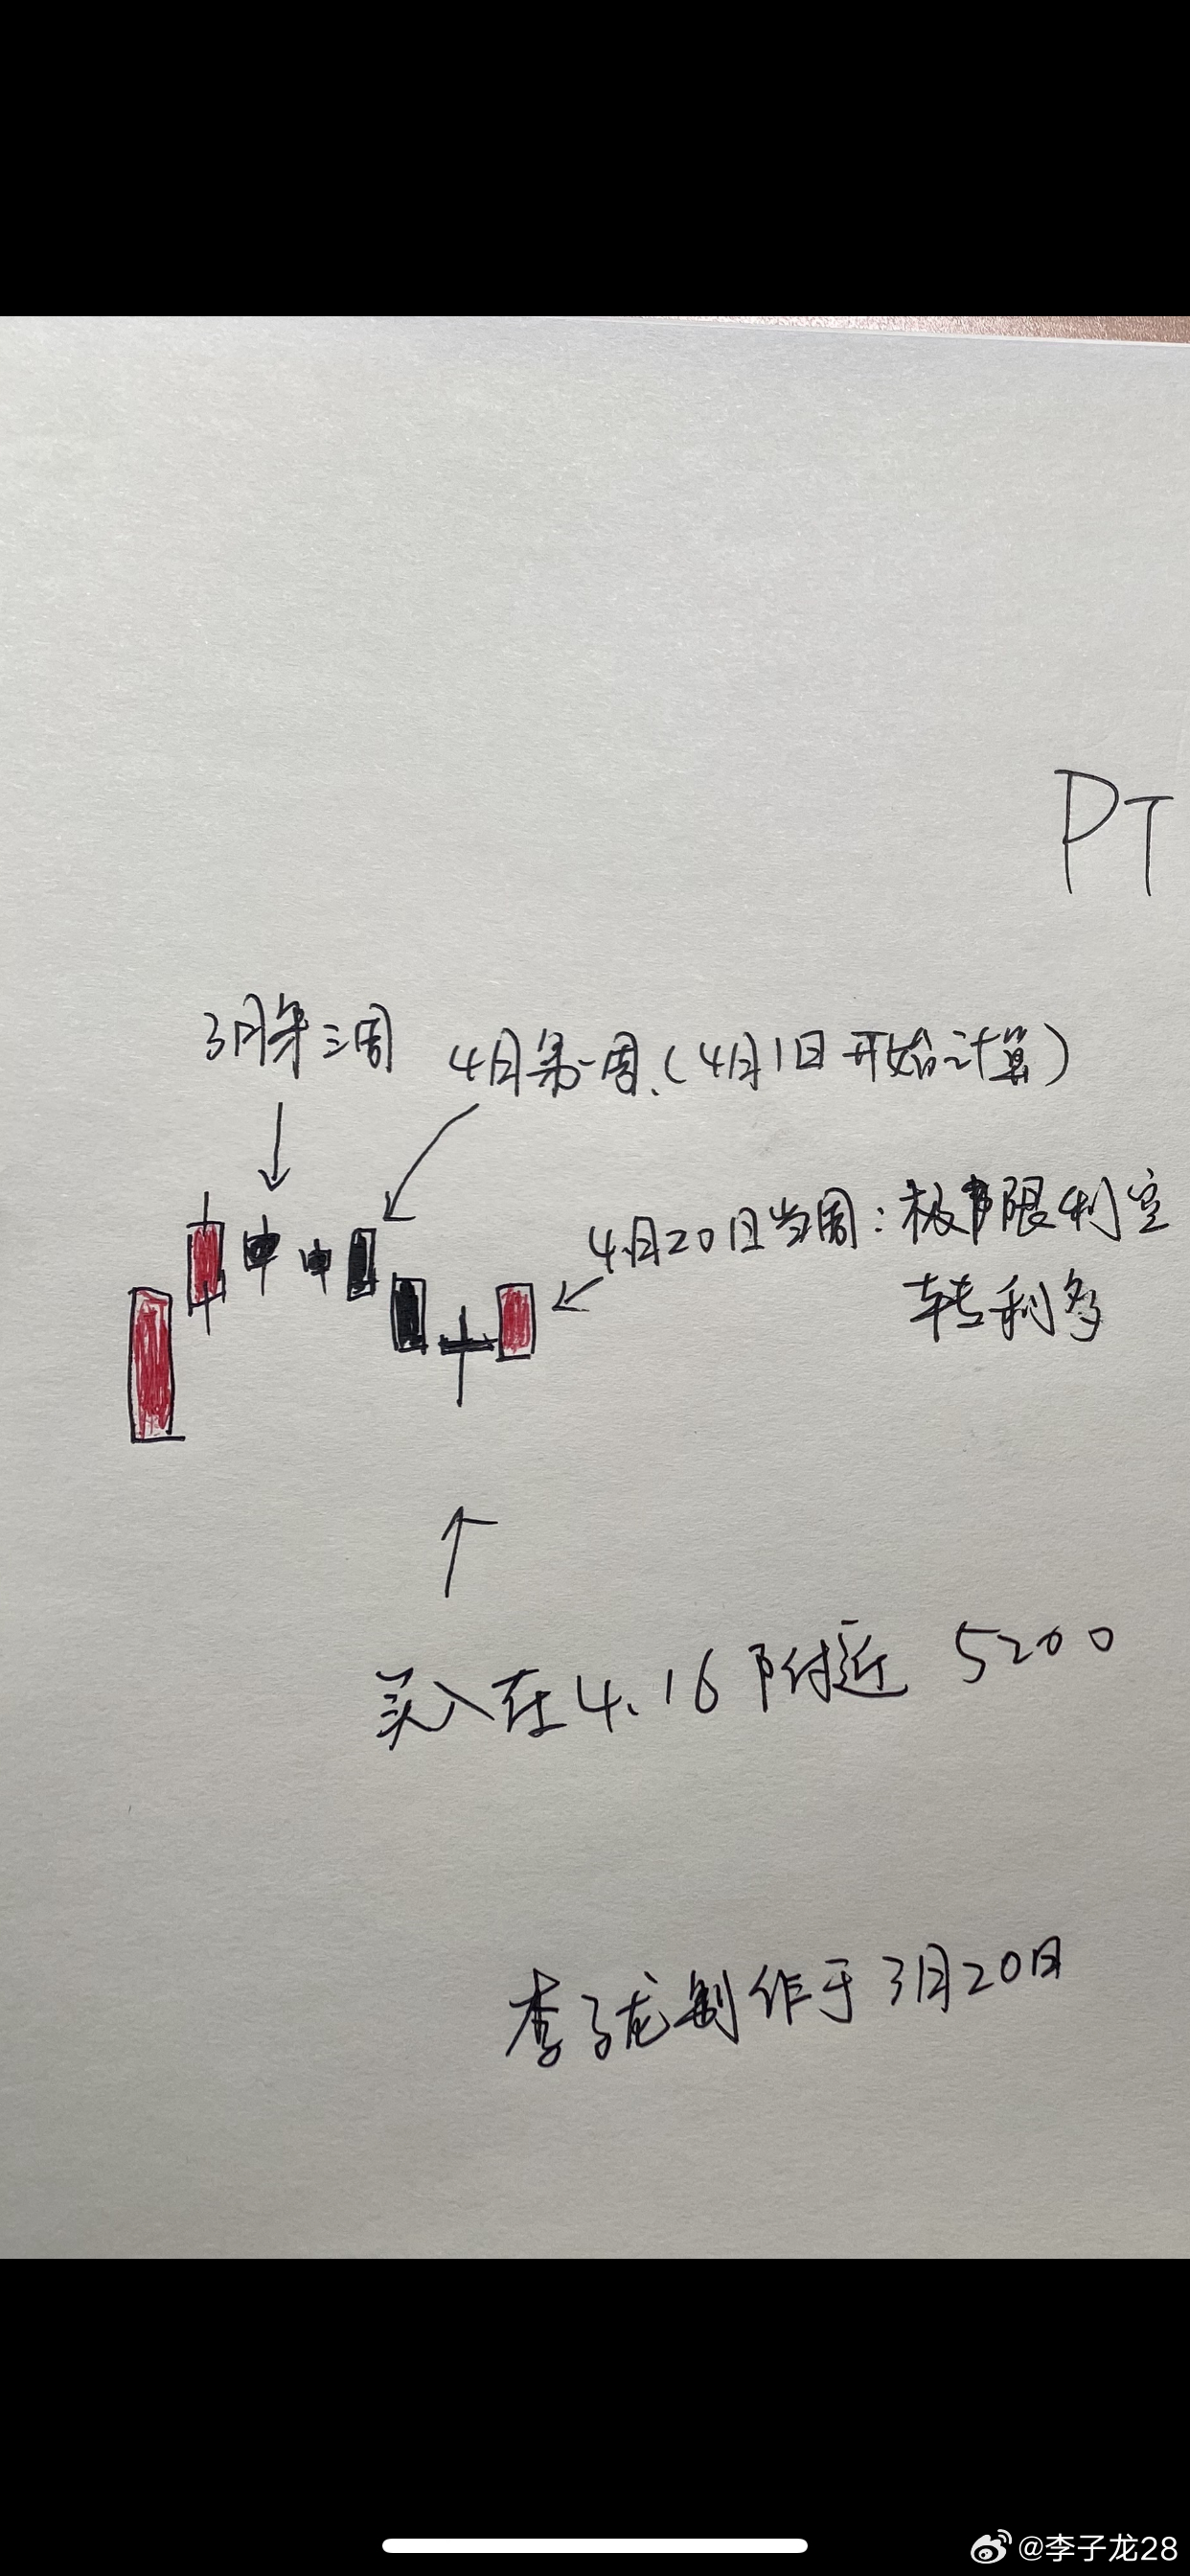 PT
3月第三周
4月第一周(4月1日开始计算)
4月20日当周:极限利空
转利多
买入在4.16附近 5200
李子龙制作于3月20日
@李子龙28